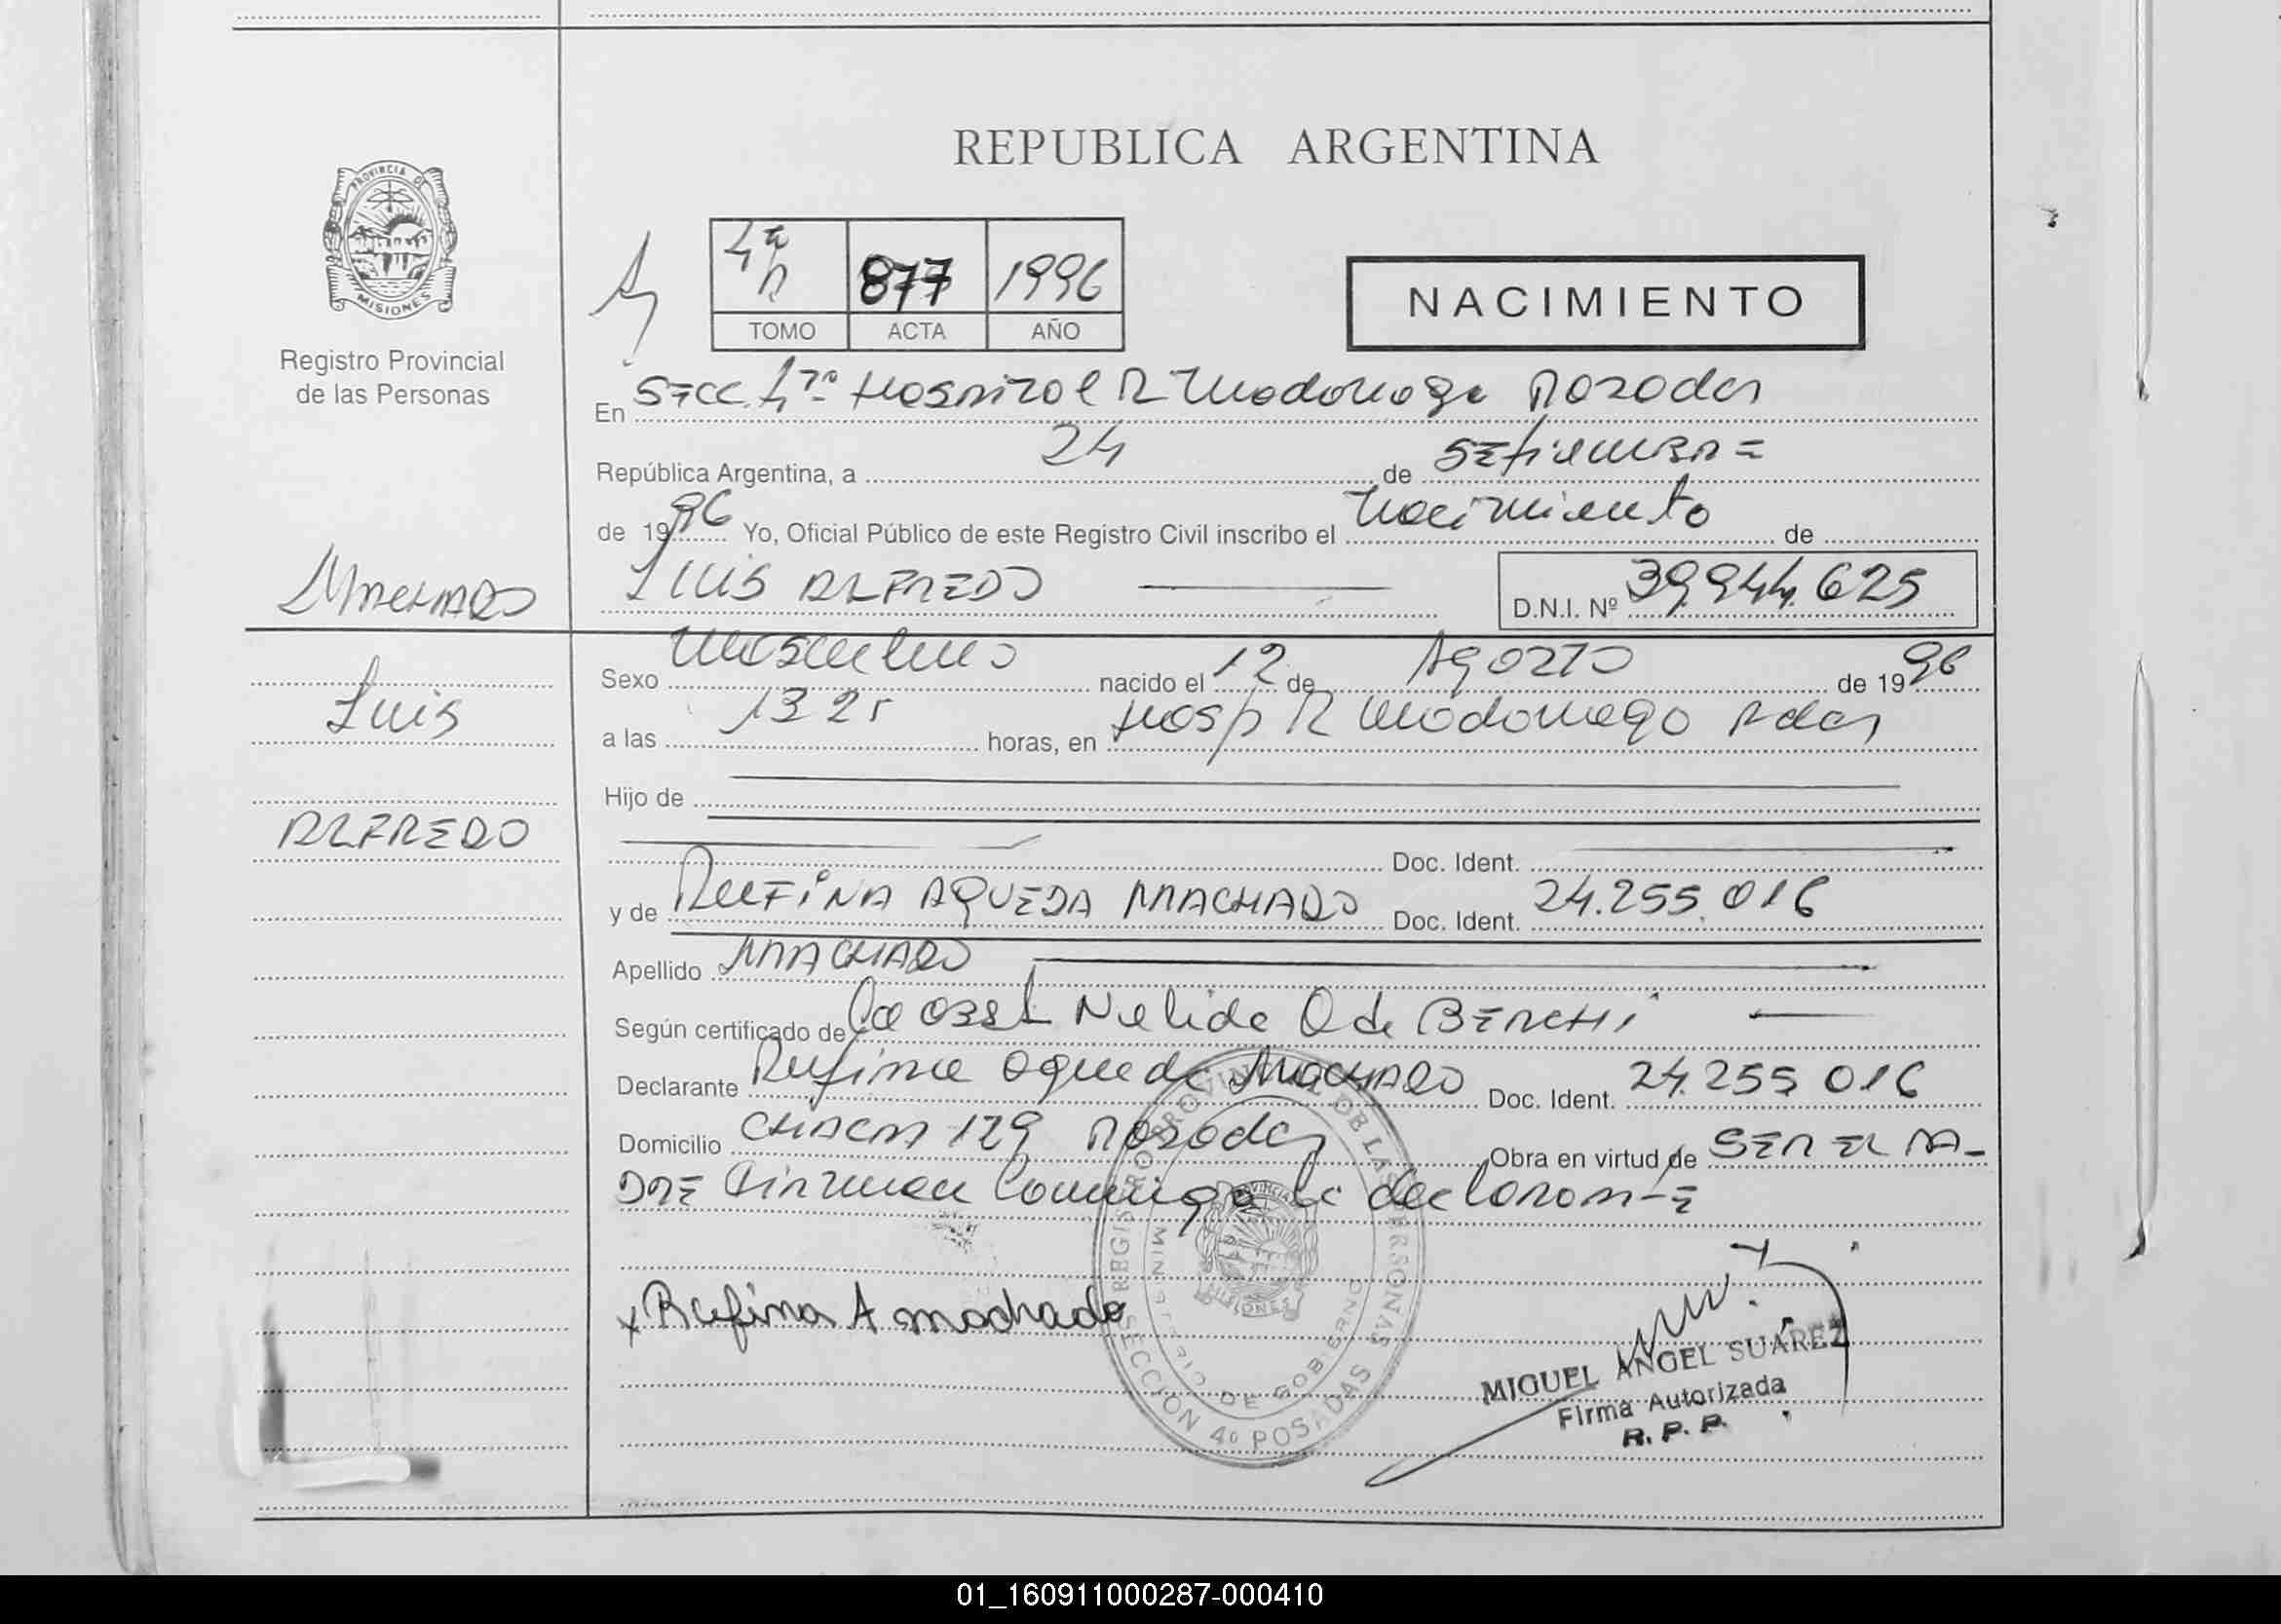 REPUBLICA ARGENTINA
PROVINCIA DE
MISIONES
Registro Provincial
de las Personas
4ta
877
1996
TOMO
ACTA
AÑO
NACIMIENTO
En Secc. 4ta Hospital R Madariaga Posadas
República Argentina, a 24 de SEtiEMBRE
de 1996 Yo, Oficial Público de este Registro Civil inscribo el Nacimiento de
MACHADO
LUIS ALFREDO
D.N.I. Nº 39.944.625
Luis
ALFREDO
Sexo Masculino nacido el 12 de AgOSTO de 1996
a las 13 25 horas, en Hosp R Madariaga Pdas
Hijo de
Doc. Ident.
y de RUFINA AQUEDA MACHADO Doc. Ident. 24.255.016
Apellido MACHADO
Según certificado de La OBST Nelida O de BERCHI
Declarante Rufina Aqueda MACHADO Doc. Ident. 24.255 016
Domicilio CHACRA 129 Posadas Obra en virtud de SER LA
DRE Firman Conmigo la declarante
x Rufina A machado
REGISTRO PROVINCIAL DE LAS PERSONAS
MINISTERIO DE GOBIERNO
PROVINCIA
MISIONES
SECCION 4º POSADAS
MIGUEL ANGEL SUAREZ
Firma Autorizada
R. P. P.
01_160911000287-000410